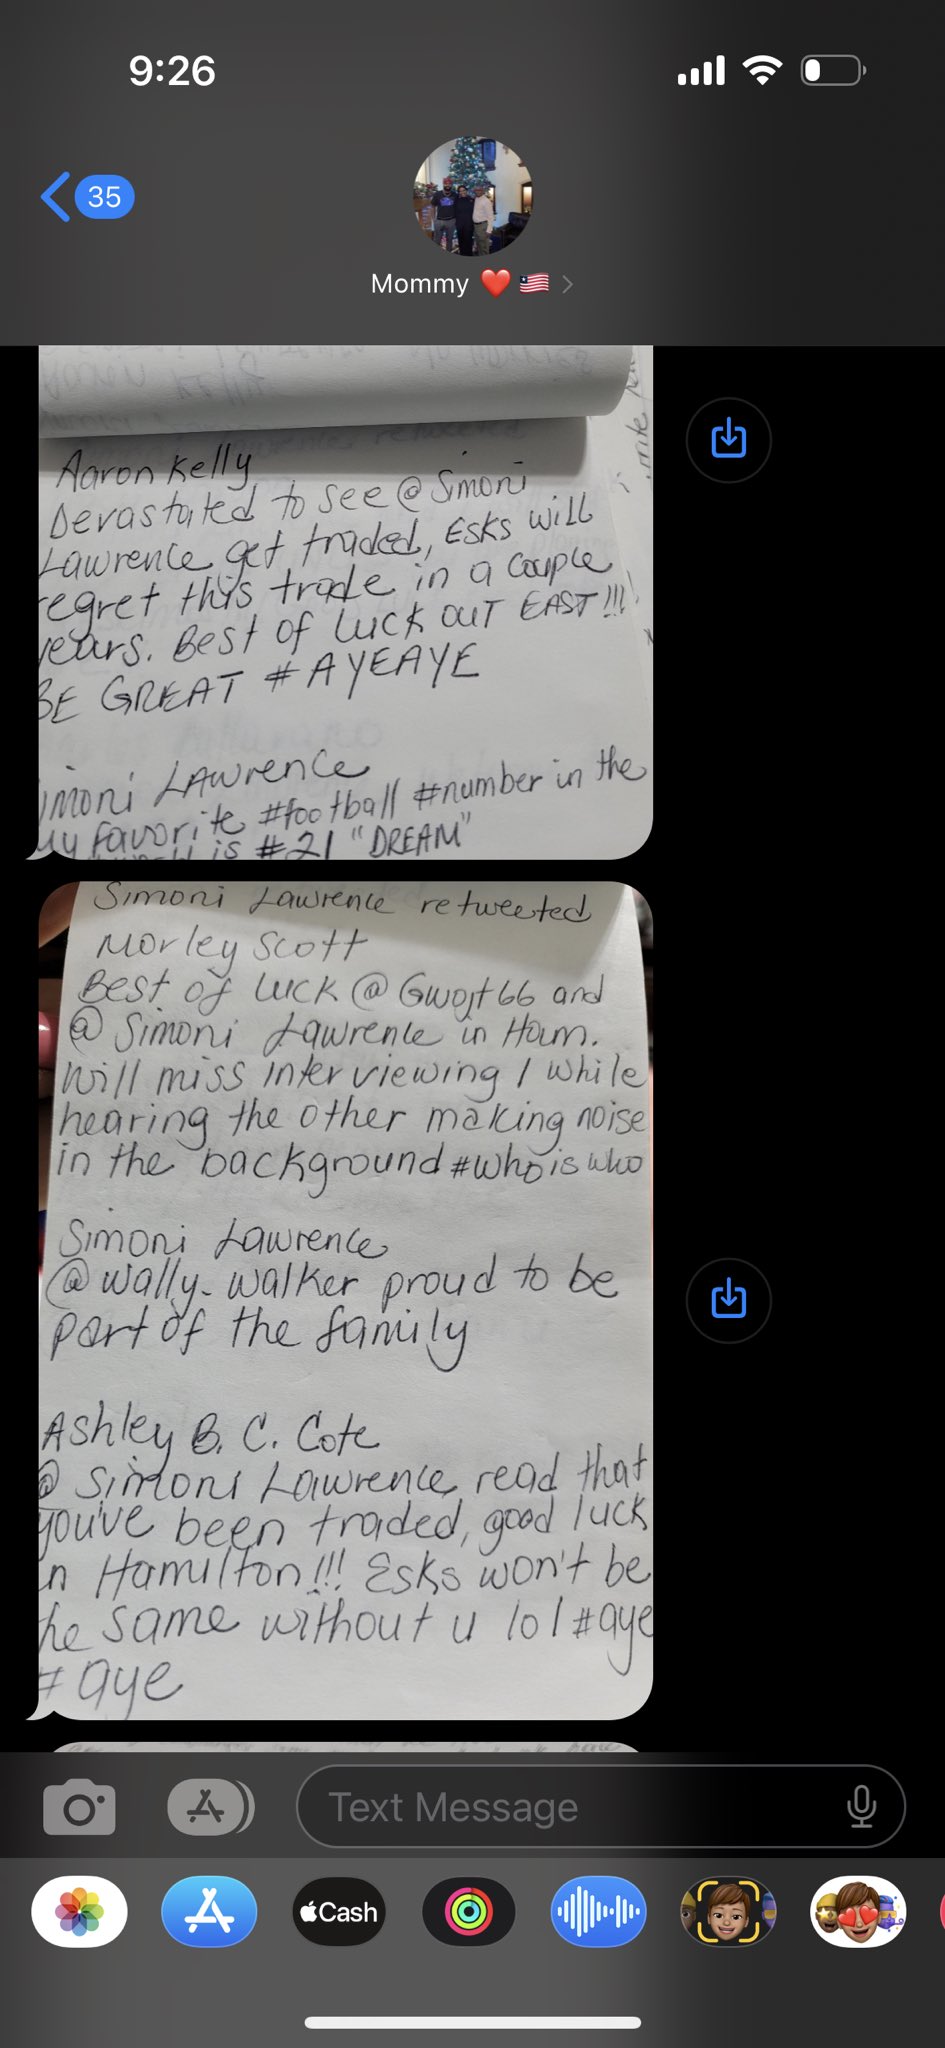 9:26
35
Mommy ❤️ 🇱🇷 >
Aaron Kelly
Devastated to see @ Simoni
Lawrence get traded, Esks will
regret this trade in a couple
years. Best of luck out EAST!!!
BE GREAT #AYEAYE
imoni Lawrence
My favorite #football #number in the
is #21 "DREAM"
Simoni Lawrence retweeted
Morley Scott
Best of luck @ Gwojt66 and
@ Simoni Lawrence in Ham.
Will miss interviewing 1 while
hearing the other making noise
in the background #whoiswho
Simoni Lawrence
@ wally-walker proud to be
part of the family
Ashley B. C. Cote
@ Simoni Lawrence read that
you've been traded, good luck
in Hamilton!!! Esks won't be
the same without u lol #aye
#aye
Text Message
Cash